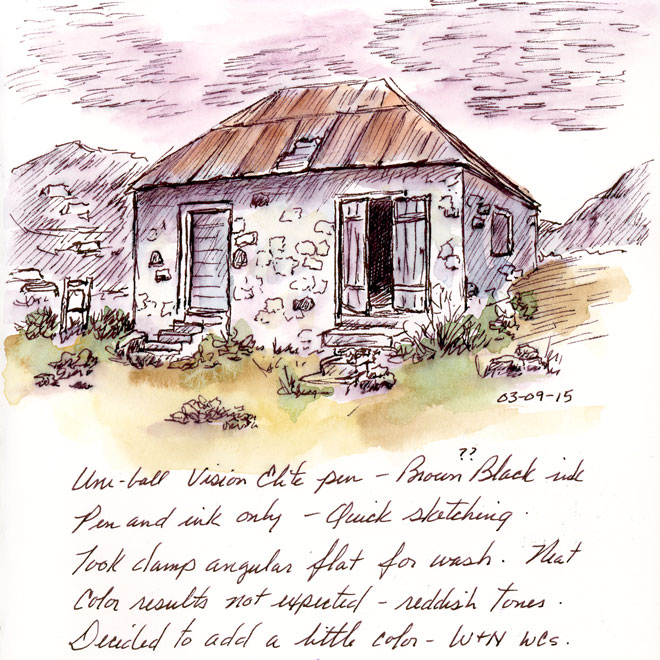 03-09-15
??
Uni-ball Vision Elite pen - Brown Black ink
Pen and ink only - Quick sketching.
Took damp angular flat for wash. Neat
Color results not expected - reddish tones.
Decided to add a little color - W+N WCs.